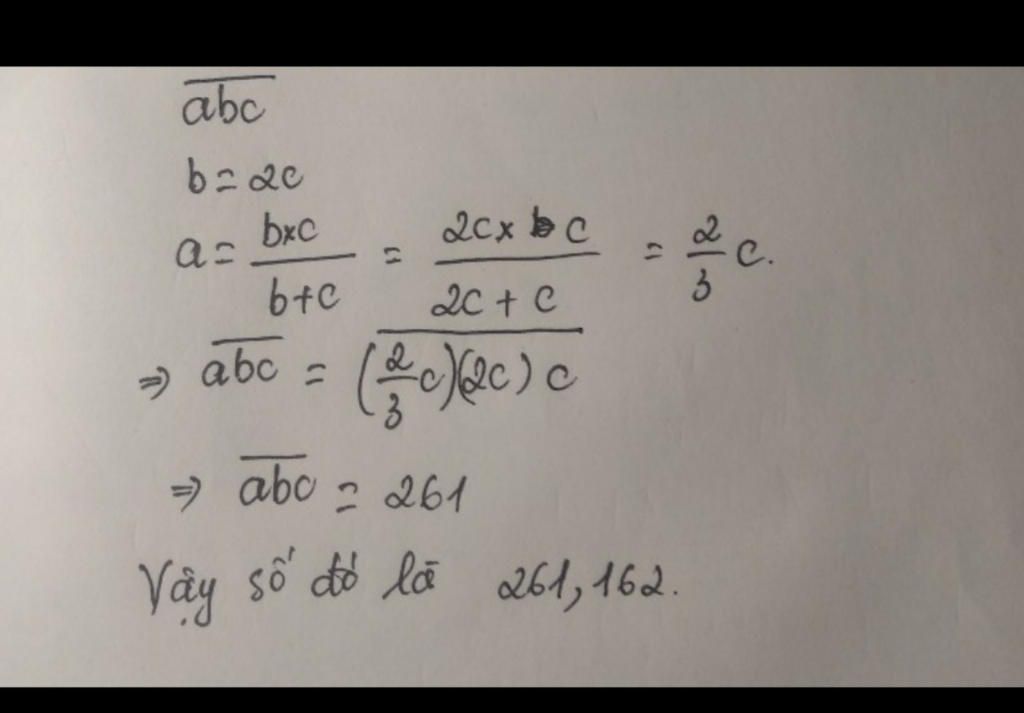 \overline{abc}
b = 2c
a = \frac{b×c}{b+c} = \frac{2c × c}{2c + c} = \frac{2}{3} c.
⇒ \overline{abc} = \overline{(\frac{2}{3}c)(2c) c}
⇒ \overline{abc} = 261
Vậy số đó là 261, 162.